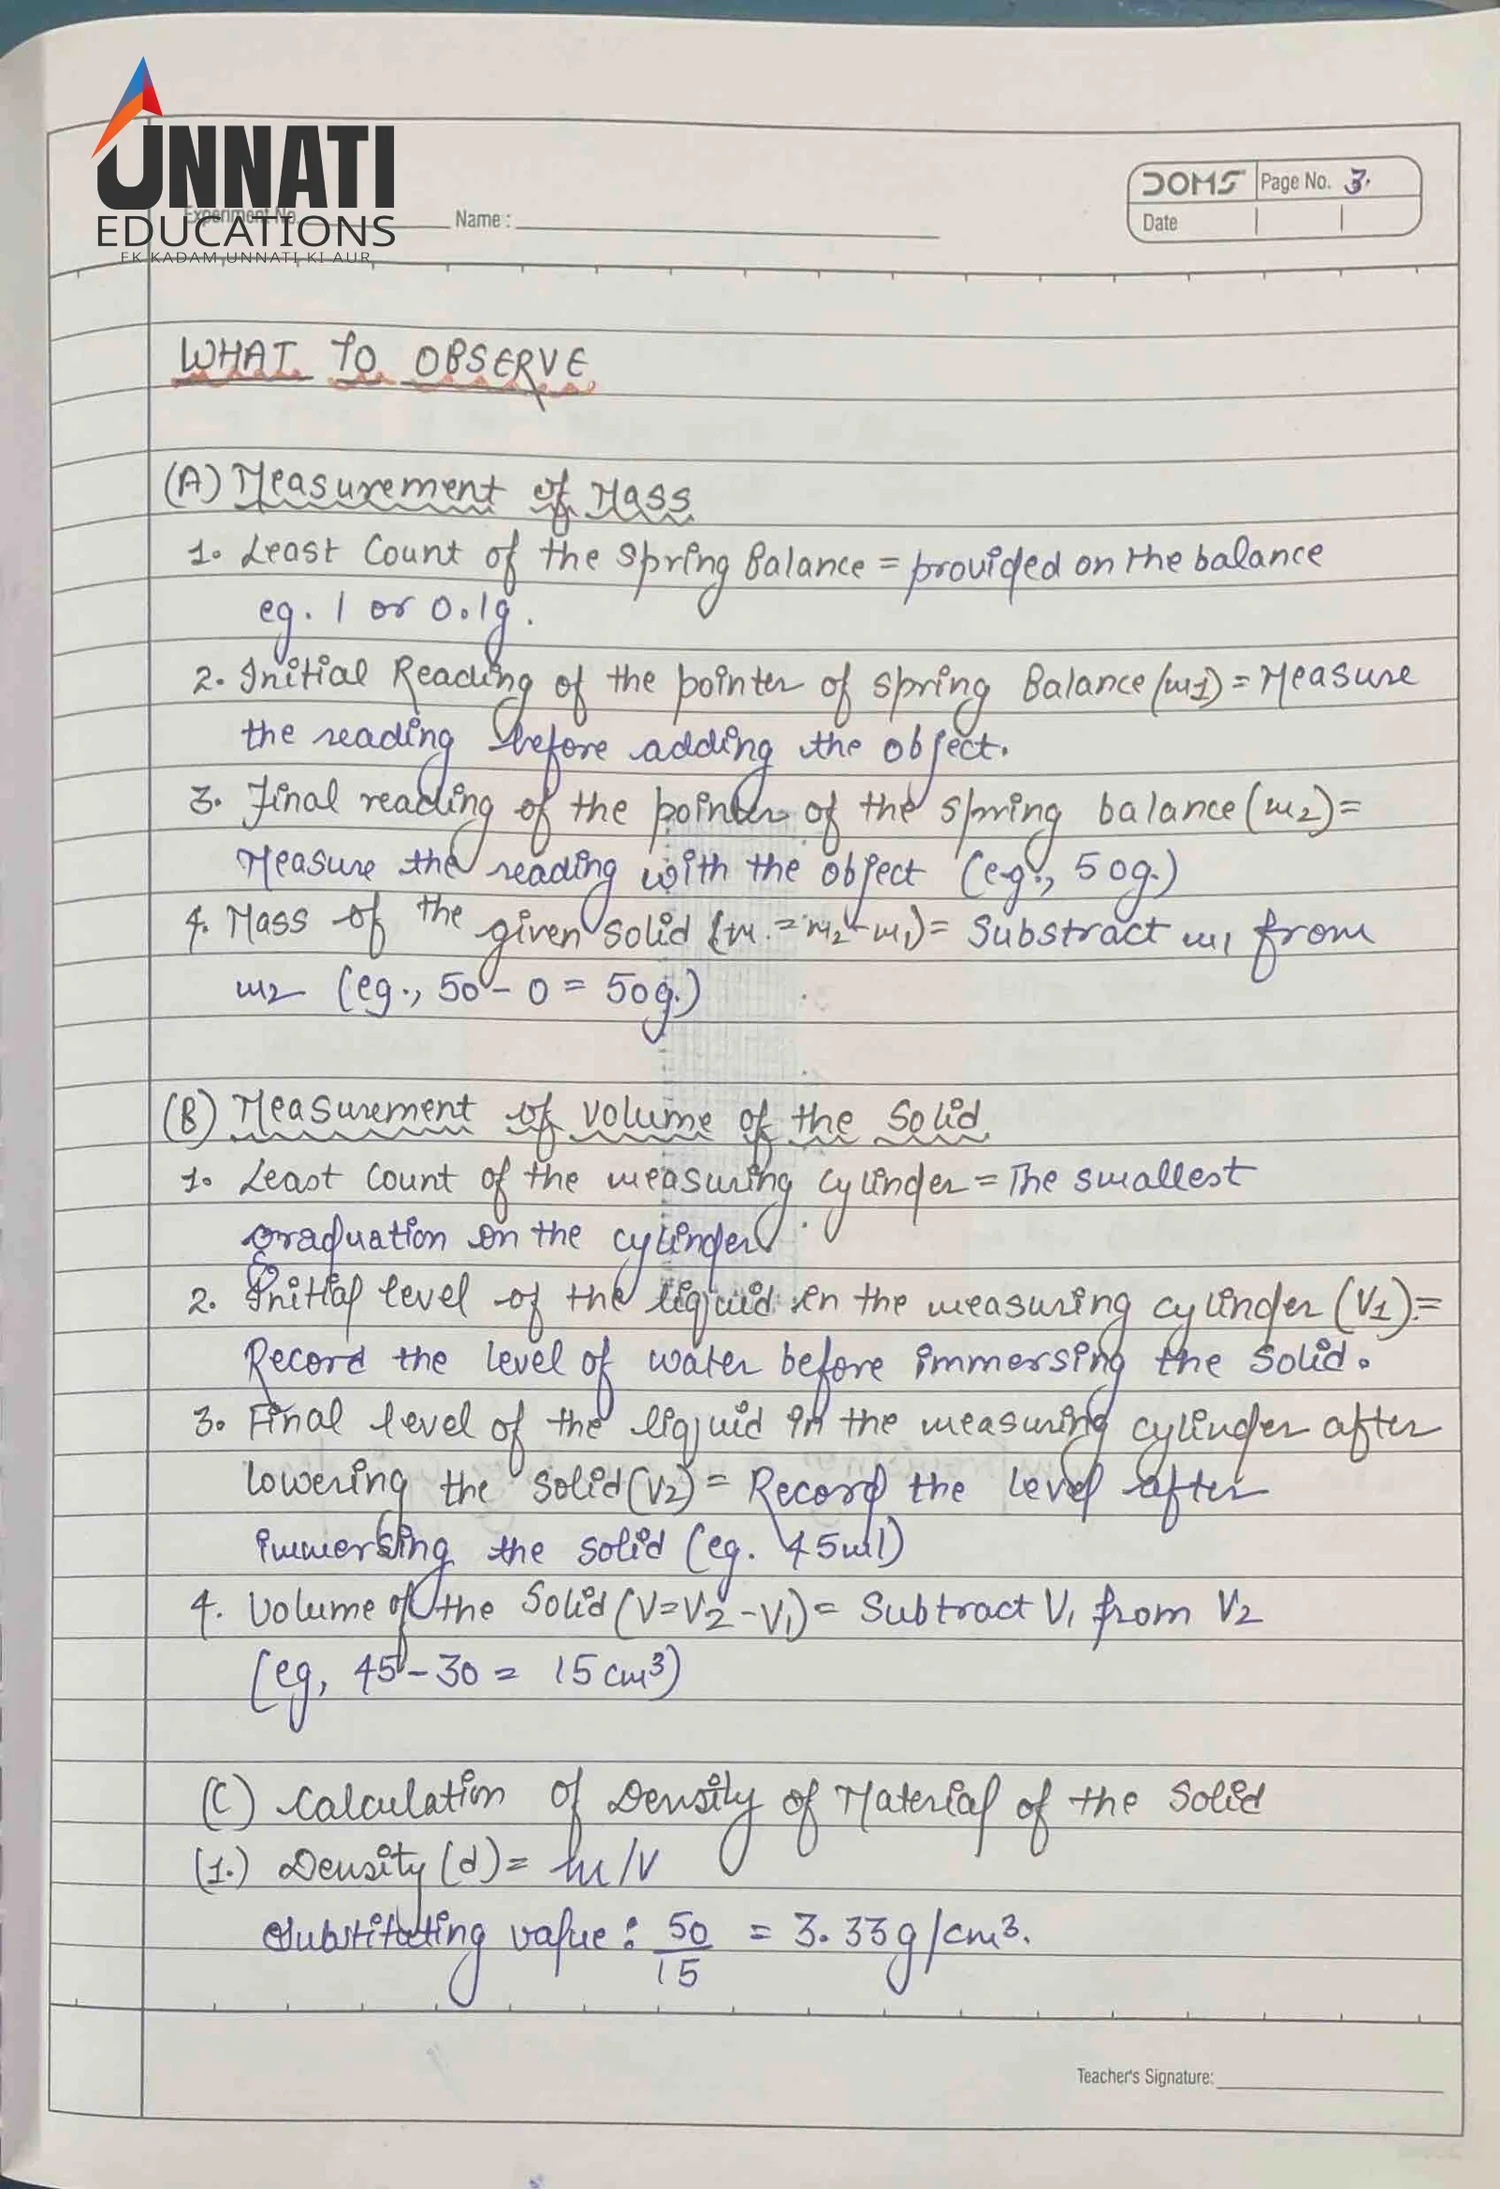 UNNATI
EDUCATIONS
EK KADAM UNNATI KI AUR
Experiment No. Name :
DOMS Page No. 3.
Date
WHAT TO OBSERVE
(A) Measurement of Mass
1. Least Count of the Spring Balance = provided on the balance
eg. 1 or 0.1g.
2. Initial Reading of the pointer of spring Balance (m1) = Measure
the reading before adding the object.
3. Final reading of the pointer of the spring balance (m2) =
Measure the reading with the object (e.g., 50g.)
4. Mass of the given Solid (m = m2 - m1) = Substract m1 from
m2 (eg., 50 - 0 = 50g.)
(B) Measurement of Volume of the Solid
1. Least Count of the measuring cylinder = The smallest
graduation on the cylinder.
2. Initial level of the liquid in the measuring cylinder (V1) =
Record the level of water before immersing the Solid.
3. Final level of the liquid in the measuring cylinder after
lowering the Solid (V2) = Record the level after
immersing the solid (eg. 45ml)
4. Volume of the Solid (V = V2 - V1) = Subtract V1 from V2
(eg, 45 - 30 = 15 cm³)
(C) Calculation of Density of Material of the Solid
(1.) Density (d) = m/V
Substituting value: 50/15 = 3.33g/cm³.
Teacher's Signature: